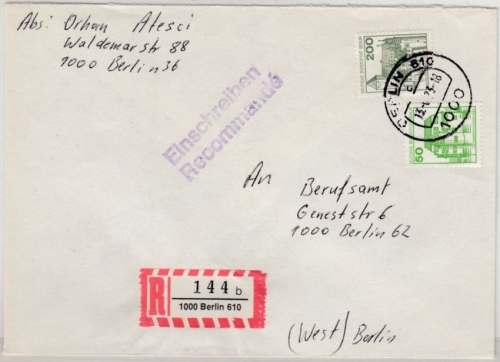 Abs: Orhan Atesci
Waldemarstr 88
1000 Berlin 36
Einschreiben
Recommandé
200
BERLIN 610
1000
50
An Berufsamt
Geneststr 6
1000 Berlin 62
R 144 b
1000 Berlin 610
(West) Berlin